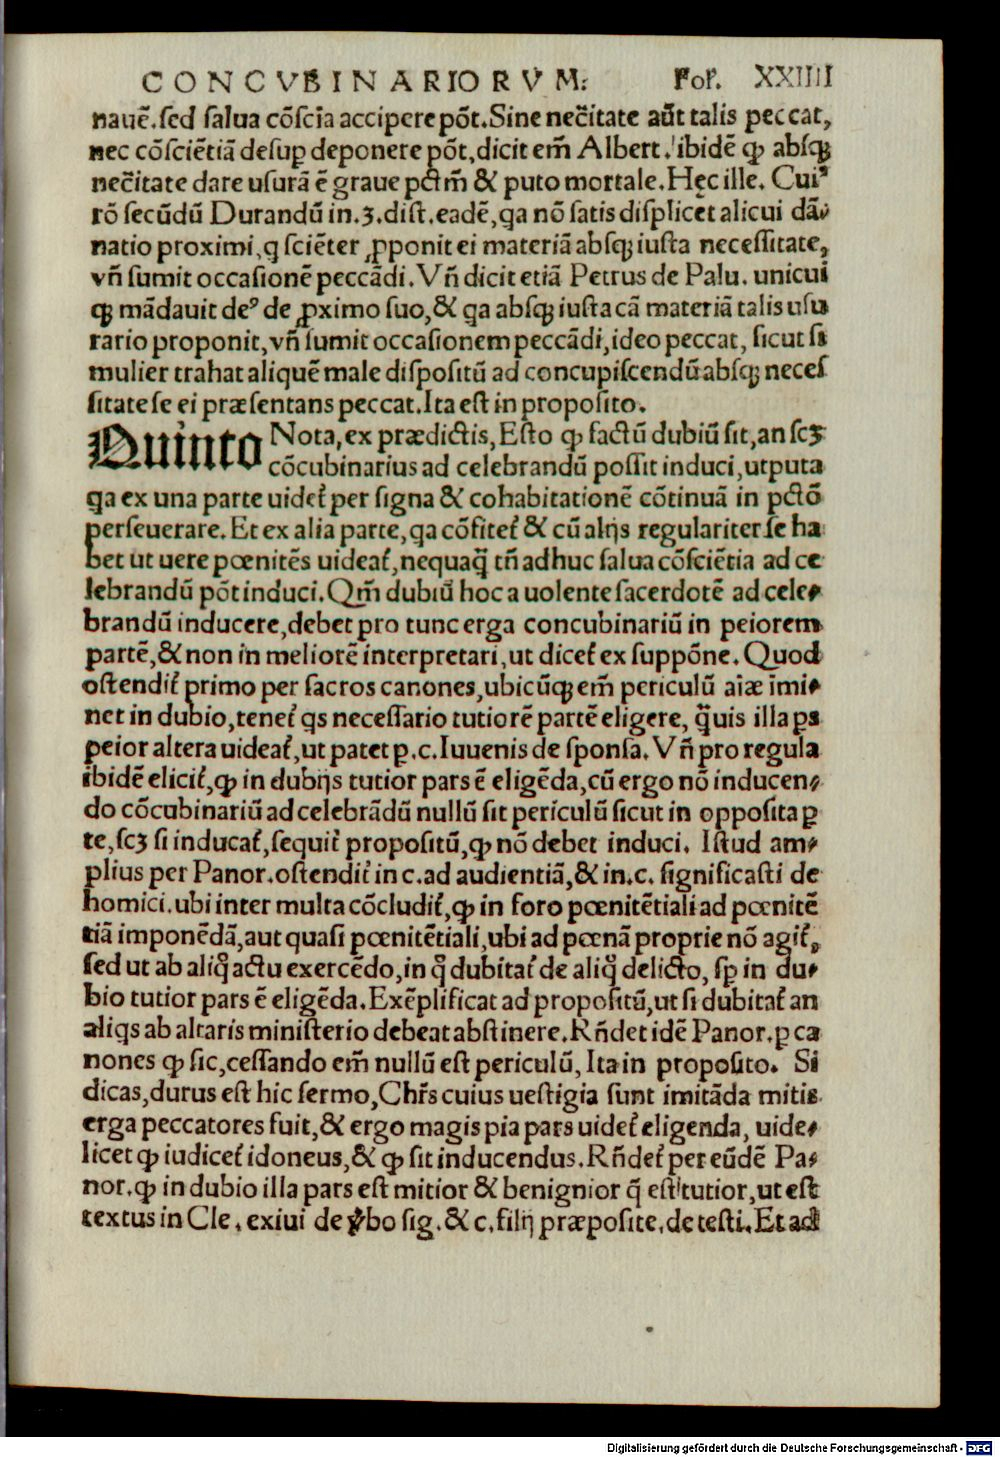 CONCVBINARIORVM: Fol. XXIIII
nauē. sed salua cōsciā accipere pōt. Sine nec̄itate aūt talis peccat,
nec cōsciētiā desuꝑ deponere pōt, dicit em̄ Albert. ibidē ꝙ absq́
nec̄itate dare usurā ē graue pctm̄ & puto mortale. Hęc ille. Cuiꝰ
rō secūdū Durandū in. 3. dist. eadē, qa nō satis displicet alicui dā⸗
natio proximi, q sciēter ꝓponit ei materiā absqꝫ iusta necessitate,
vn̄ sumit occasionē peccādi. Vn̄ dicit etiā Petrus de Palu. unicui
qꝫ mādauit deꝰ de ꝓximo suo, & qa absqꝫ iusta cā materiā talis usu
rario proponit, vn̄ sumit occasionem peccādi, ideo peccat, sicut si
mulier trahat aliquē male dispositū ad concupiscendū absqꝫ neces
sitate se ei præsentans peccat. Ita est in proposito.
Quinto Nota, ex prædictis, Esto ꝙ factū dubiū sit, an scꝫ
cōcubinarius ad celebrandū possit induci, utputa
qa ex una parte uidet᷑ per signa & cohabitationē cōtinuā in pctō
perseuerare. Et ex alia parte, qa cōfitet᷑ & cū alijs regulariter se ha
bet ut uere pœnitēs uideat᷑, nequaq̄ tn̄ adhuc salua cōsciētia ad ce
lebrandū pōt induci. Qm̄ dubiū hoc a uolente sacerdotē ad cele⸗
brandū inducere, debet pro tunc erga concubinariū in peiorem
partē, & non in meliorē interpretari, ut dicet᷑ ex suppōne. Quod
ostendit᷑ primo per sacros canones, ubicūqꝫ em̄ periculū aīæ īmi⸗
net in dubio, tenet᷑ qs necessario tutiorē partē eligere, q̄uis illa ps
peior altera uideat᷑, ut patet ꝑ. c. Iuuenis de sponsa. Vn̄ pro regula
ibidē elicit᷑, ꝙ in dubijs tutior pars ē eligēda, cū ergo nō inducen⸗
do cōcubinariū ad celebrādū nullū sit periculū sicut in opposita ꝑ
te, scꝫ si inducat᷑, sequit᷑ propositū, ꝙ nō debet induci. Istud am⸗
plius per Panor. ostendit᷑ in c. ad audientiā, & in. c. significasti de
homici. ubi inter multa cōcludit᷑, ꝙ in foro pœnitētiali ad pœnitē
tiā imponēdā, aut quasi pœnitētiali, ubi ad pœnā proprie nō agit᷑,
sed ut ab aliq̊ actu exercēdo, in q̊ dubitat᷑ de aliq̊ delicto, sꝑ in du⸗
bio tutior pars ē eligēda. Exēplificat ad propositū, ut si dubitat᷑ an
aliqs ab altaris ministerio debeat abstinere. Rn̄det idē Panor. ꝑ ca
nones ꝙ sic, cessando em̄ nullū est periculū, Ita in proposito. Si
dicas, durus est hic sermo, Chr̄s cuius uestigia sunt imitāda mitis
erga peccatores fuit, & ergo magis pia pars uidet᷑ eligenda, uide⸗
licet ꝙ iudicet᷑ idoneus, & ꝙ sit inducendus. Rn̄det᷑ per eūdē Pa⸗
nor. ꝙ in dubio illa pars est mitior & benignior q̄ est tutior, ut est
textus in Cle. exiui de v̓bo sig. & c. filij præposite, de testi. Et ad
Digitalisierung gefördert durch die Deutsche Forschungsgemeinschaft - DFG